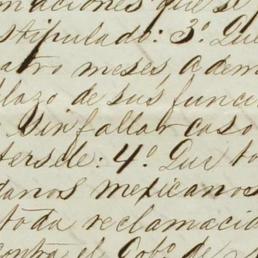 maciones que se
stipulado: 3.º Que
atro meses, adem
plazo de sus funci
Sin fallar caso
terse le: 4.º Que to
danos mexicanos
toda reclamació
contra el Gob.º de